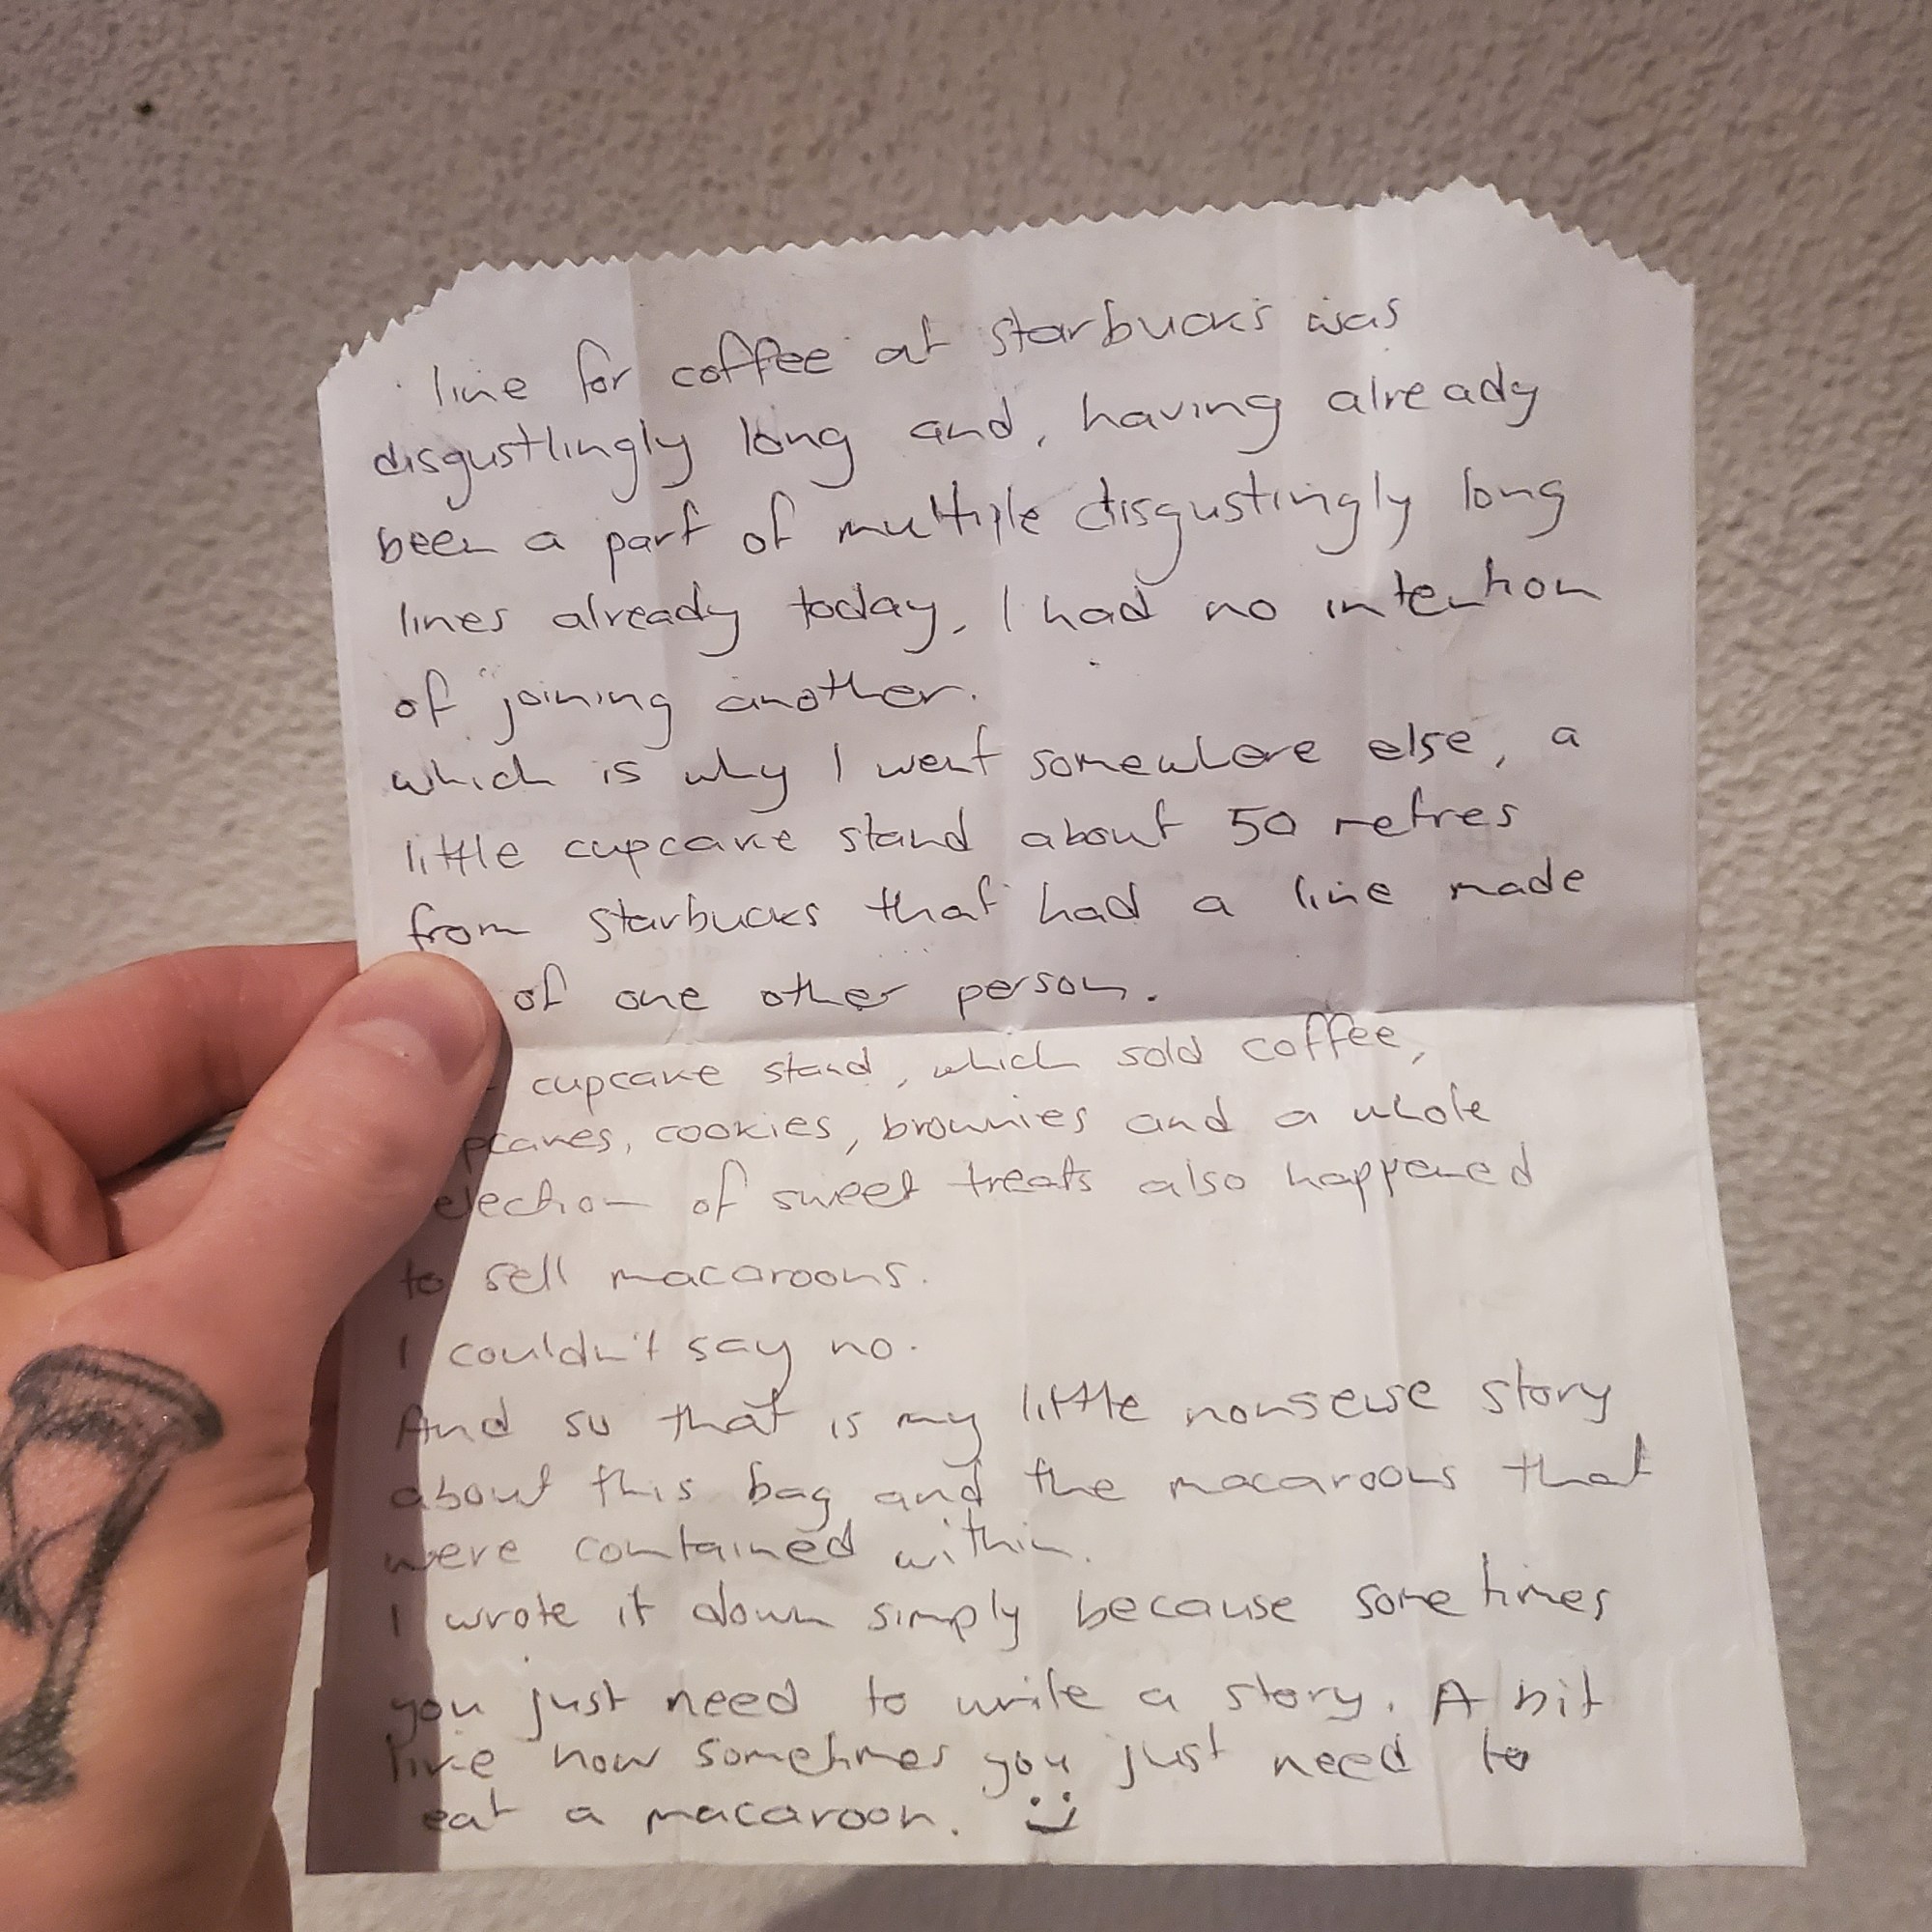 line for coffee at starbucks was
disgustlingly long and, having already
been a part of multiple disgustingly long
lines already today, I had no intention
of joining another.
which is why I went somewhere else, a
little cupcake stand about 50 metres
from starbucks that had a line made
of one other person.
cupcake stand, which sold coffee,
pcakes, cookies, brownies and a whole
election of sweet treats also happened
to sell macaroons.
I couldn't say no.
And so that is my little nonsense story
about this bag and the macaroons that
were contained within.
I wrote it down simply because sometimes
you just need to write a story. A bit
like how sometimes you just need to
eat a macaroon. :)